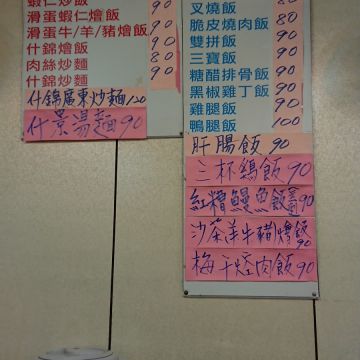 蝦仁炒飯 90
滑蛋蝦仁燴飯 90
滑蛋牛/羊/豬燴飯 90
什錦燴飯 90
肉絲炒麵 80
什錦炒麵 90
什錦廣東炒麵 120
什景湯麵 90
叉燒飯 80
脆皮燒肉飯 80
雙拼飯 90
三寶飯 90
糖醋排骨飯 90
黑椒雞丁飯 90
雞腿飯 90
鴨腿飯 100
肝腸飯 90
三杯鷄飯 90
紅糟鰻魚飯 90
沙茶羊牛豬燴飯 90
梅干控肉飯 90